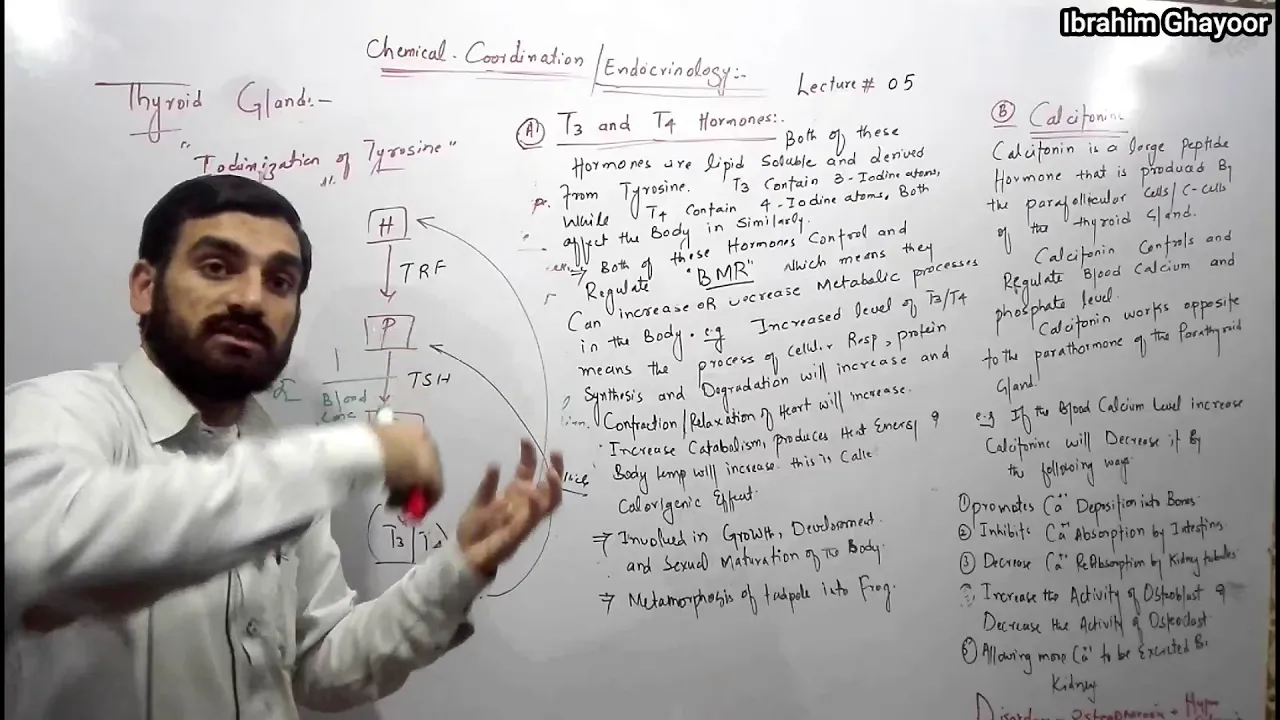 Ibrahim Ghayoor
Chemical Coordination / Endocrinology:-
Lecture # 05
Thyroid Gland:-
"Iodinization of Tyrosine"
H
TRF
P
TSH
Blood
T3 | T4
(A) T3 and T4 Hormones:-
Both of these
Hormones are lipid Soluble and derived
From Tyrosine. T3 Contain 3-Iodine atoms,
While T4 Contain 4-Iodine atoms, Both
affect the Body in Similarly.
⇒ Both of these Hormones Control and
Regulate "BMR" which means they
Can increase OR decrease Metabolic processes
in the Body. e.g Increased level of T3/T4
means the process of Cellular Resp, protein
Synthesis and Degradation will increase and
Contraction/Relaxation of Heart will increase.
Increase Catabolism, produces Heat Energy &
Body temp will increase. this is Calle
Calorigenic Effect.
⇒ Involved in Growth, Development.
and Sexual Maturation of The Body.
⇒ Metamorphosis of tadpole into Frog.
(B) Calcitonine
Calcitonin is a large Peptide
Hormone that is produced By
the parafollicular Cells/C-cells
of the thyroid Gland.
Calcitonin Controls and
Regulate Blood Calcium and
phosphate level.
Calcitonin works opposite
to the parathormone of the Parathyroid
Gland.
e.g If the Blood Calcium Level increase
Calcitonine will Decrease it By
the following ways
① promotes Ca++ Deposition into Bones.
② Inhibits Ca++ Absorption by Intestins.
③ Decrease Ca++ ReAbsorption by Kidney tubules
Increase the Activity of Osteoblast &
Decrease the Activity of Osteoclast
⑤ Allowing more Ca++ to be Excreted By
Kidney